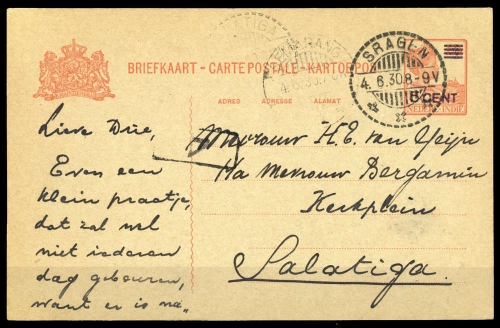 BRIEFKAART - CARTE POSTALE - KARTOEPOS
ADRES ADRESSE ALAMAT
SRAGEN
4.6.30.8-9V
CENT
Lieve Dée,
Even een
klein praatje,
dat zal wel
niet iederen
dag gebeuren,
want er is na
Mevrouw H.E. van
p/a Mevrouw Bergamin
Kerkplein
Salatiga.